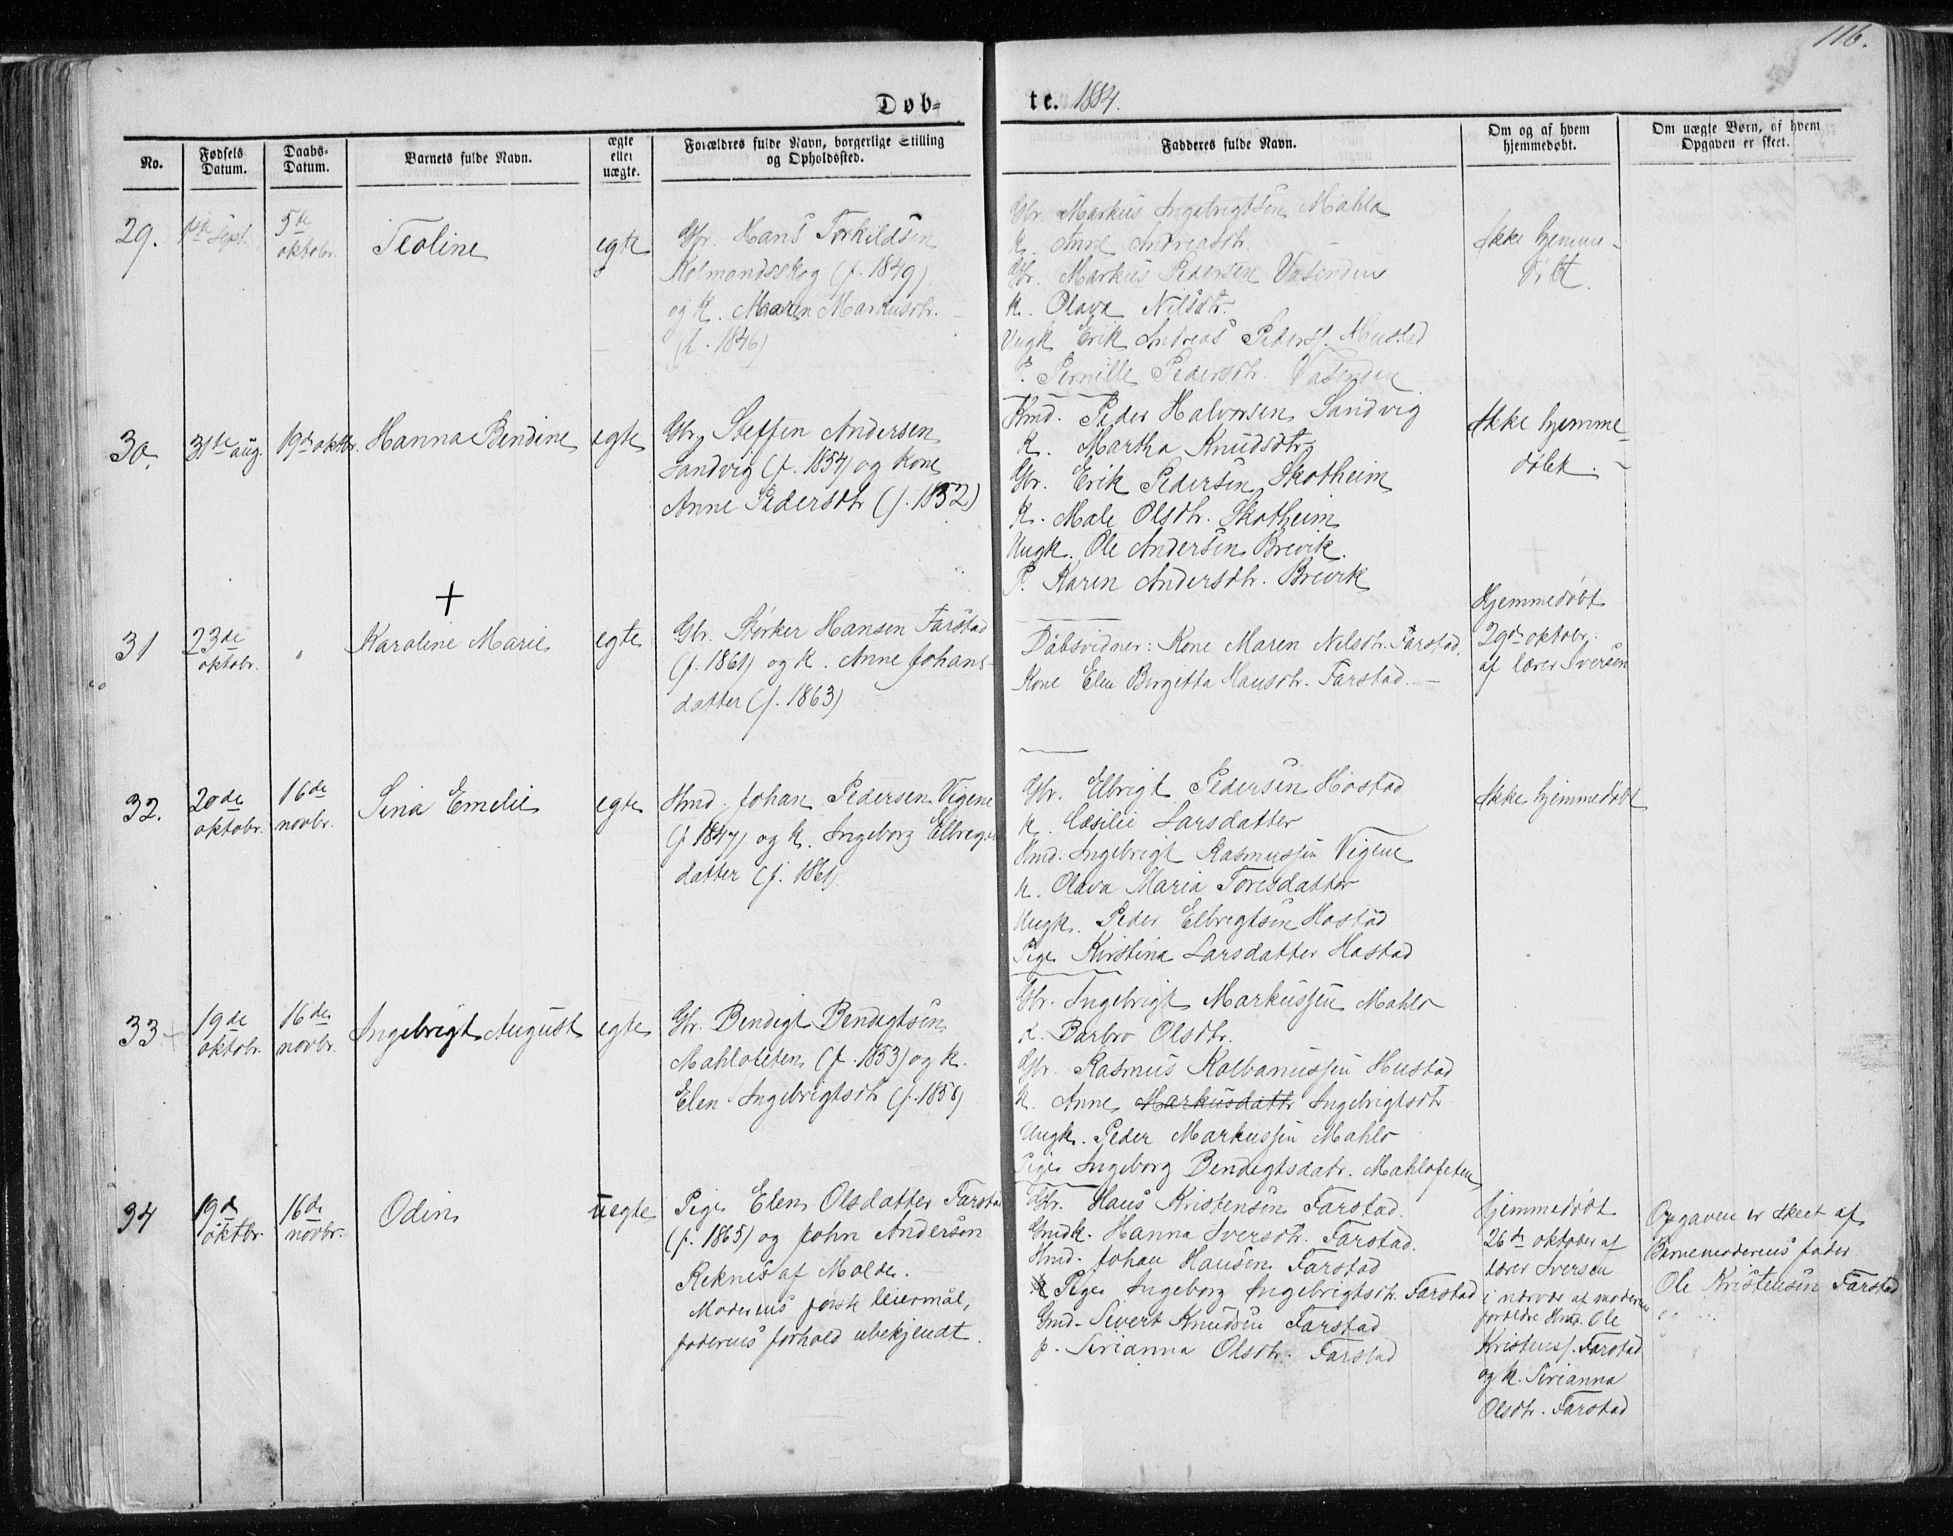 116.
Døb-
te. 1884.
No.
Fødsels
Datum.
Daabs-
Datum.
Barnets fulde Navn.
ægte
eller
uægte.
Forældres fulde Navn, borgerlige Stilling
og Opholdssted.
Fadderes fulde Navn.
Om og af hvem
hjemmedøbt.
Om uægte Børn, af hvem
Opgaven er skeet.
29.
1ste Sept.
5te
oktobr.
Teoline
egte
Gbr. Hans Torkildsen
Kolmandsskog (f. 1849)
og K. Maren Markusdtr.
(f. 1846)
Gbr. Markus Ingebrigtsen Mahlo
K. Anne Andreasdtr.
Gbr. Markus Pedersen Vasenden
K. Olava Nilsdtr.
Ungk Erik Andreas Peders. Hustad
P. Pernille Pedersdtr. Vasenden
Ikke hjemme-
døbt.
30.
31te aug.
19de oktbr.
Hanna Bendine
egte
Gbr. Steffen Andersen
Sandvig (f. 1854) og Kone
Anne Pedersdtr (f. 1852)
Hmd. Peder Halvorsen Sandvig
K. Martha Knudsdtr
Gbr. Erik Pedersen Skotheim
K. Male Olsdtr. Skotheim
Ungk. Ole Andersen Brevik.
P. Karen Andersdtr. Brevik
Ikke hjemme-
døbt.
+
31
23de
oktobr.
"
Karoline Marie
egte
Gbr. Størker Hansen Farstad
(f. 1861) og K. Anne Johans-
datter (f. 1863)
Dåbsvidner: Kone Maren Nilsdtr. Farstad.
Kone Elen Birgitta Hansdtr. Farstad.
Hjemmedøbt
29de oktobr.
af lærer Iversen
32.
20de
oktobr.
16de
novbr.
Sina Emelie
egte
Hmd. Johan Pedersen Vigene
(f 1847) og K. Ingeborg Elbregts
datter (f. 1861)
Gbr. Elbrigt Pedersen Hostad
K. Cæsilie Larsdatter
Hmd. Ingebrigt Rasmussen Vigene
K. Olava Maria Toresdatter
Ungk. Peder Elbregtsen Hostad
Pige Kirstina Larsdatter Hostad
Ikke hjemmedøbt
33
19de
oktobr.
16de
novbr.
Ingebrigt August
egte
Gbr. Bendigt Bendigtsen
Mahlofeten (f. 1853) og K.
Elen Ingebrigtsdtr (f. 1858)
Gbr. Ingebrigt Markussen Mahlo
K. Barbro Olsdtr.
Gbr. Rasmus Kolbanussen Hustad
K. Anne Markusdattr Ingebrigtsdtr
Ungk. Peder Markussen Mahlo
Pige Ingeborg Bendigtsdatr. Mahlofeten
34
19de
oktbr.
16de
novbr.
Odin
uegte
Pige Elen Olsdatter Farstad
(f. 1863) og John Andersen
Reknes af Molde.
Moderens første leiermål,
faderens forhold ubekjendt.
Gbr. Hans Kristensen Farstad.
Gmdk. Hanna Iversdtr. Farstad.
Hmd. Johan Hansen Farstad
Pige Ingeborg Ingebrigtsdtr. Farstad
Gmd. Sivert Knudsen Farstad
p. Sirianna Olsdtr. Farstad
Hjemmedøbt
26de oktober af
lærer Iversen
i nærvær af moderens
forældre Hmd. Ole
Kristens. Farstad
og K. Sirianna
Olsdtr. Farstad
Opgaven er skeet af
Barnemoderens fader
Ole Kristensen Farstad